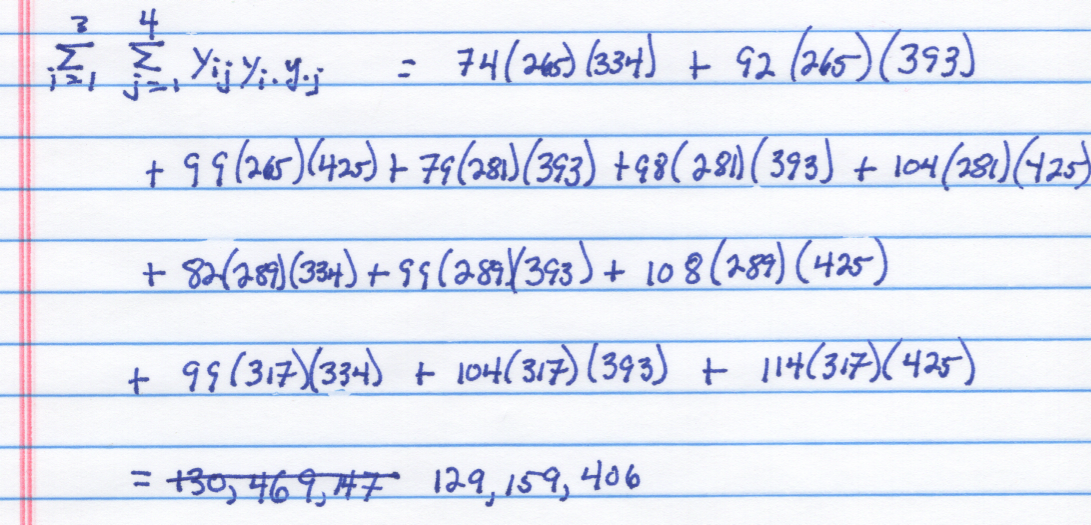 3 4
Σ Σ yᵢⱼ yᵢ. y.ⱼ = 74(265)(334) + 92(265)(393)
i=1 j=1
+ 99(265)(425) + 79(281)(393) + 98(281)(393) + 104(281)(425)
+ 82(289)(334) + 99(289)(393) + 108(289)(425)
+ 99(317)(334) + 104(317)(393) + 114(317)(425)
= 130,469,147 129,159,406